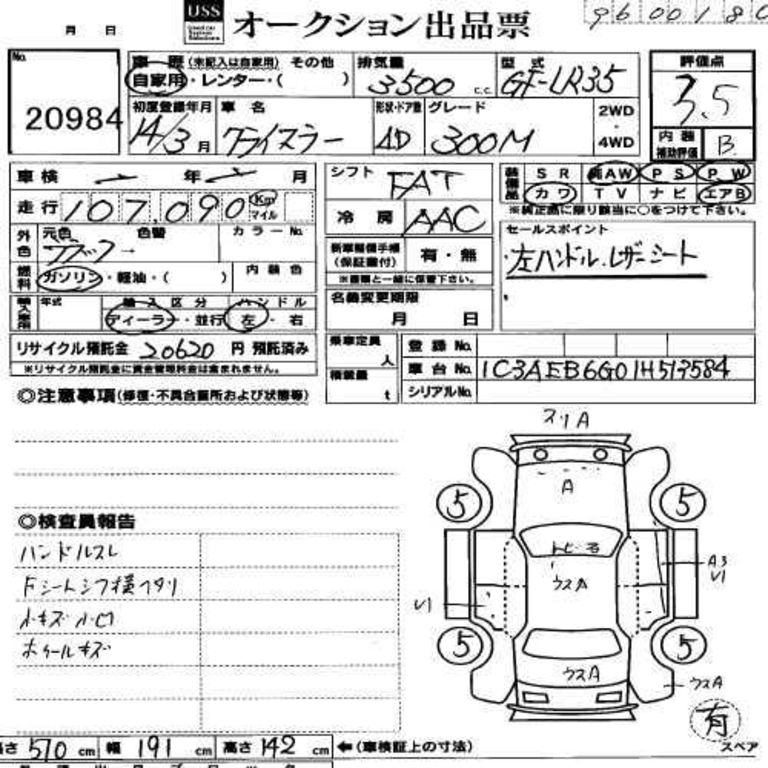 9600180
月 日
USS オークション出品票
No. 20984
車歴 (未記入は自家用) その他
自家用・レンター・( )
排気量 3500 c.c.
型式 GF-LR35
評価点 3.5
初度登録年月 14/3月
車名 クライスラー
形状・ドア数 4D
グレード 300M
2WD・4WD
内装補助評価 B
車検 年 月
走行 107,090 Km マイル
シフト FAT
冷房 AAC
装備品 SR 純AW PS PW
カワ TV ナビ エアB
※純正品に限り該当に○をつけて下さい。
外色 元色 色替 カラーNo.
燃料 ガソリン・軽油・( ) 内装色
新車整備手帳(保証書付) 有・無
※書類と一緒に保管下さい。
セールスポイント
・左ハンドル・レザーシート
輸入車用 年式 輸入区分 ハンドル
ディーラー・並行 左・右
名義変更期限
月 日
リサイクル預託金 20620 円 預託済み
※リサイクル預託金に資金管理料金は含まれません。
乗車定員 人
積載量 t
登録No.
車台No. 1C3AEB6G01H513584
シリアルNo.
◎注意事項(修復・不具合箇所および状態等)
スリA
A
5 5
トビ一石
A3
V1
ウスA
V1
5 5
ウスA
ウスA
有
スペア
◎検査員報告
ハンドルスレ
Fシートシワ様ヘタリ
小キズ小凹
ホイールキズ
長さ 510 cm 幅 191 cm 高さ 142 cm ←(車検証上の寸法)